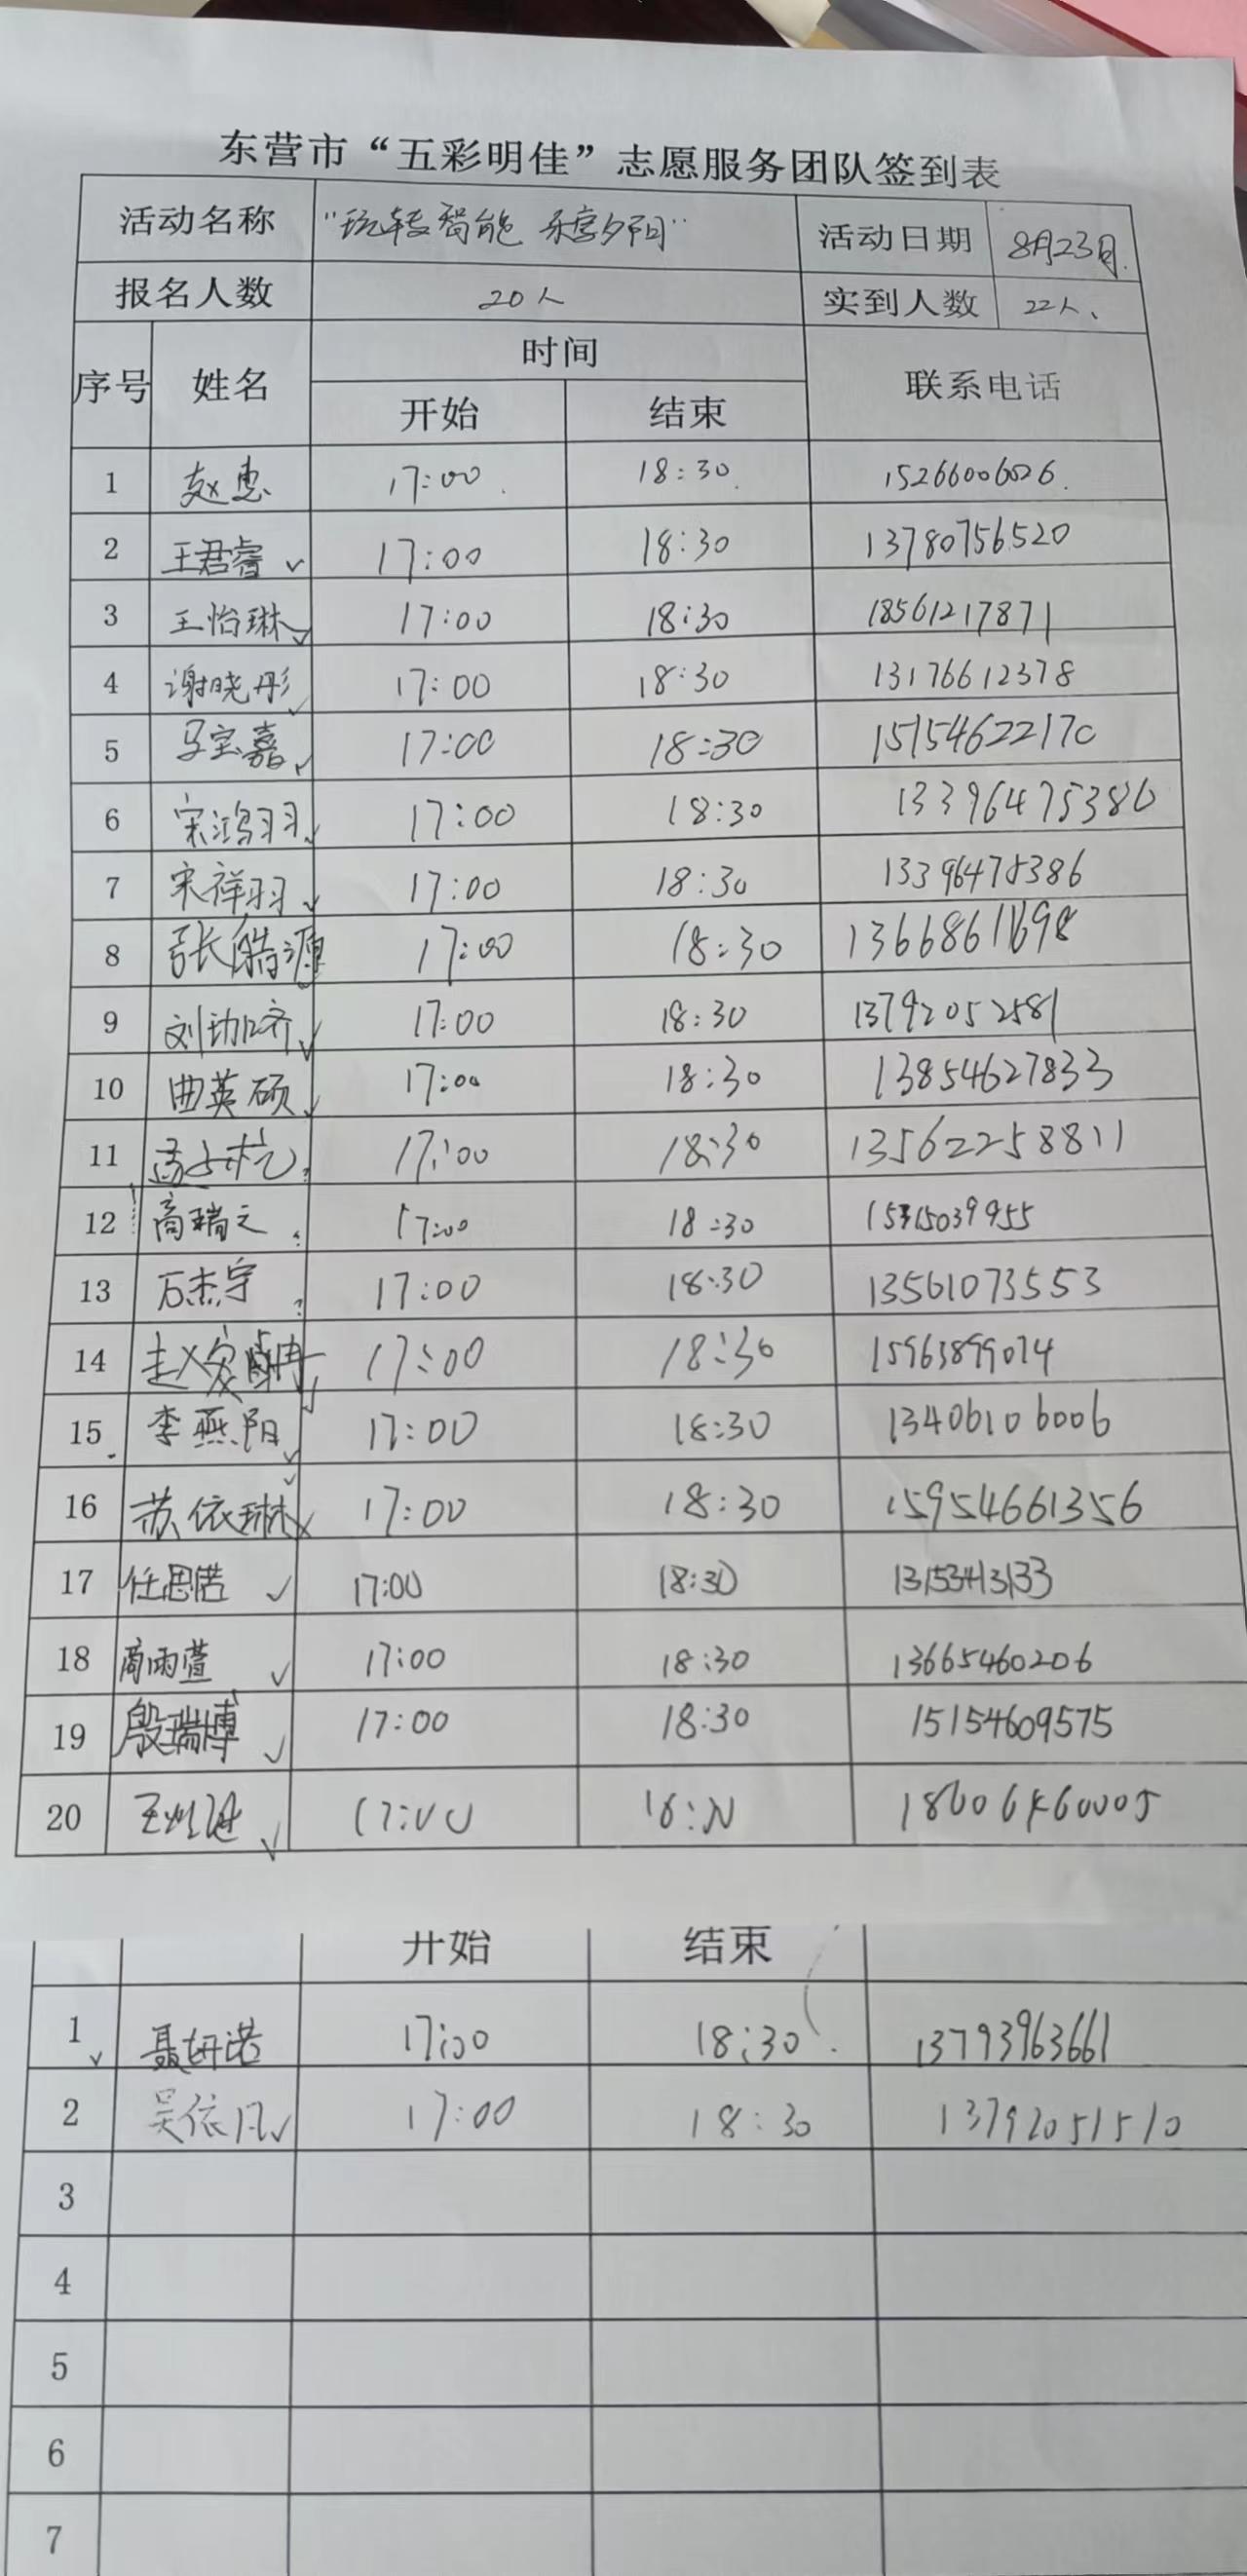 东营市“五彩明佳”志愿服务团队签到表
活动名称 “玩转智能 乐享夕阳” 活动日期 8月23日.
报名人数 20人 实到人数 22人、
序号 姓名 时间 联系电话
开始 结束
1 赵惠 17:00 18:30 15266006026.
2 王君睿 ✓ 17:00 18:30 13780756520
3 王怡琳 ✓ 17:00 18:30 18561217871
4 谢晓彤 ✓ 17:00 18:30 13176612378
5 马宝嘉 ✓ 17:00 18:30 15154622170
6 宋鸿羽 ✓ 17:00 18:30 13396475386
7 宋祥羽 ✓ 17:00 18:30 13396475386
8 张皓源 17:00 18:30
9 ✓ 17:00 18:30 13792052581
10 曲英硕 ✓ 17:00 18:30 13854627833
11 ? 17:00 18:30 13562258811
12 商瑞之 ? 17:00 18:30
13 石杰宇 ? 17:00 18:30 13561073553
14 17:00 18:30 15963899074
15 李燕阳 ✓ 17:00 18:30 13406106006
16 苏依琳 17:00 18:30 15954661356
17 任思偌 ✓ 17:00 18:30
18 商雨萱 ✓ 17:00 18:30 13665460206
19 殷瑞博 ✓ 17:00 18:30 15154609575
20 ✓ 17:00
开始 结束
1 ✓ 聂妍诺 17:00 18:30 13793963661
2 吴依凡 ✓ 17:00 18:30 13792051510
3
4
5
6
7